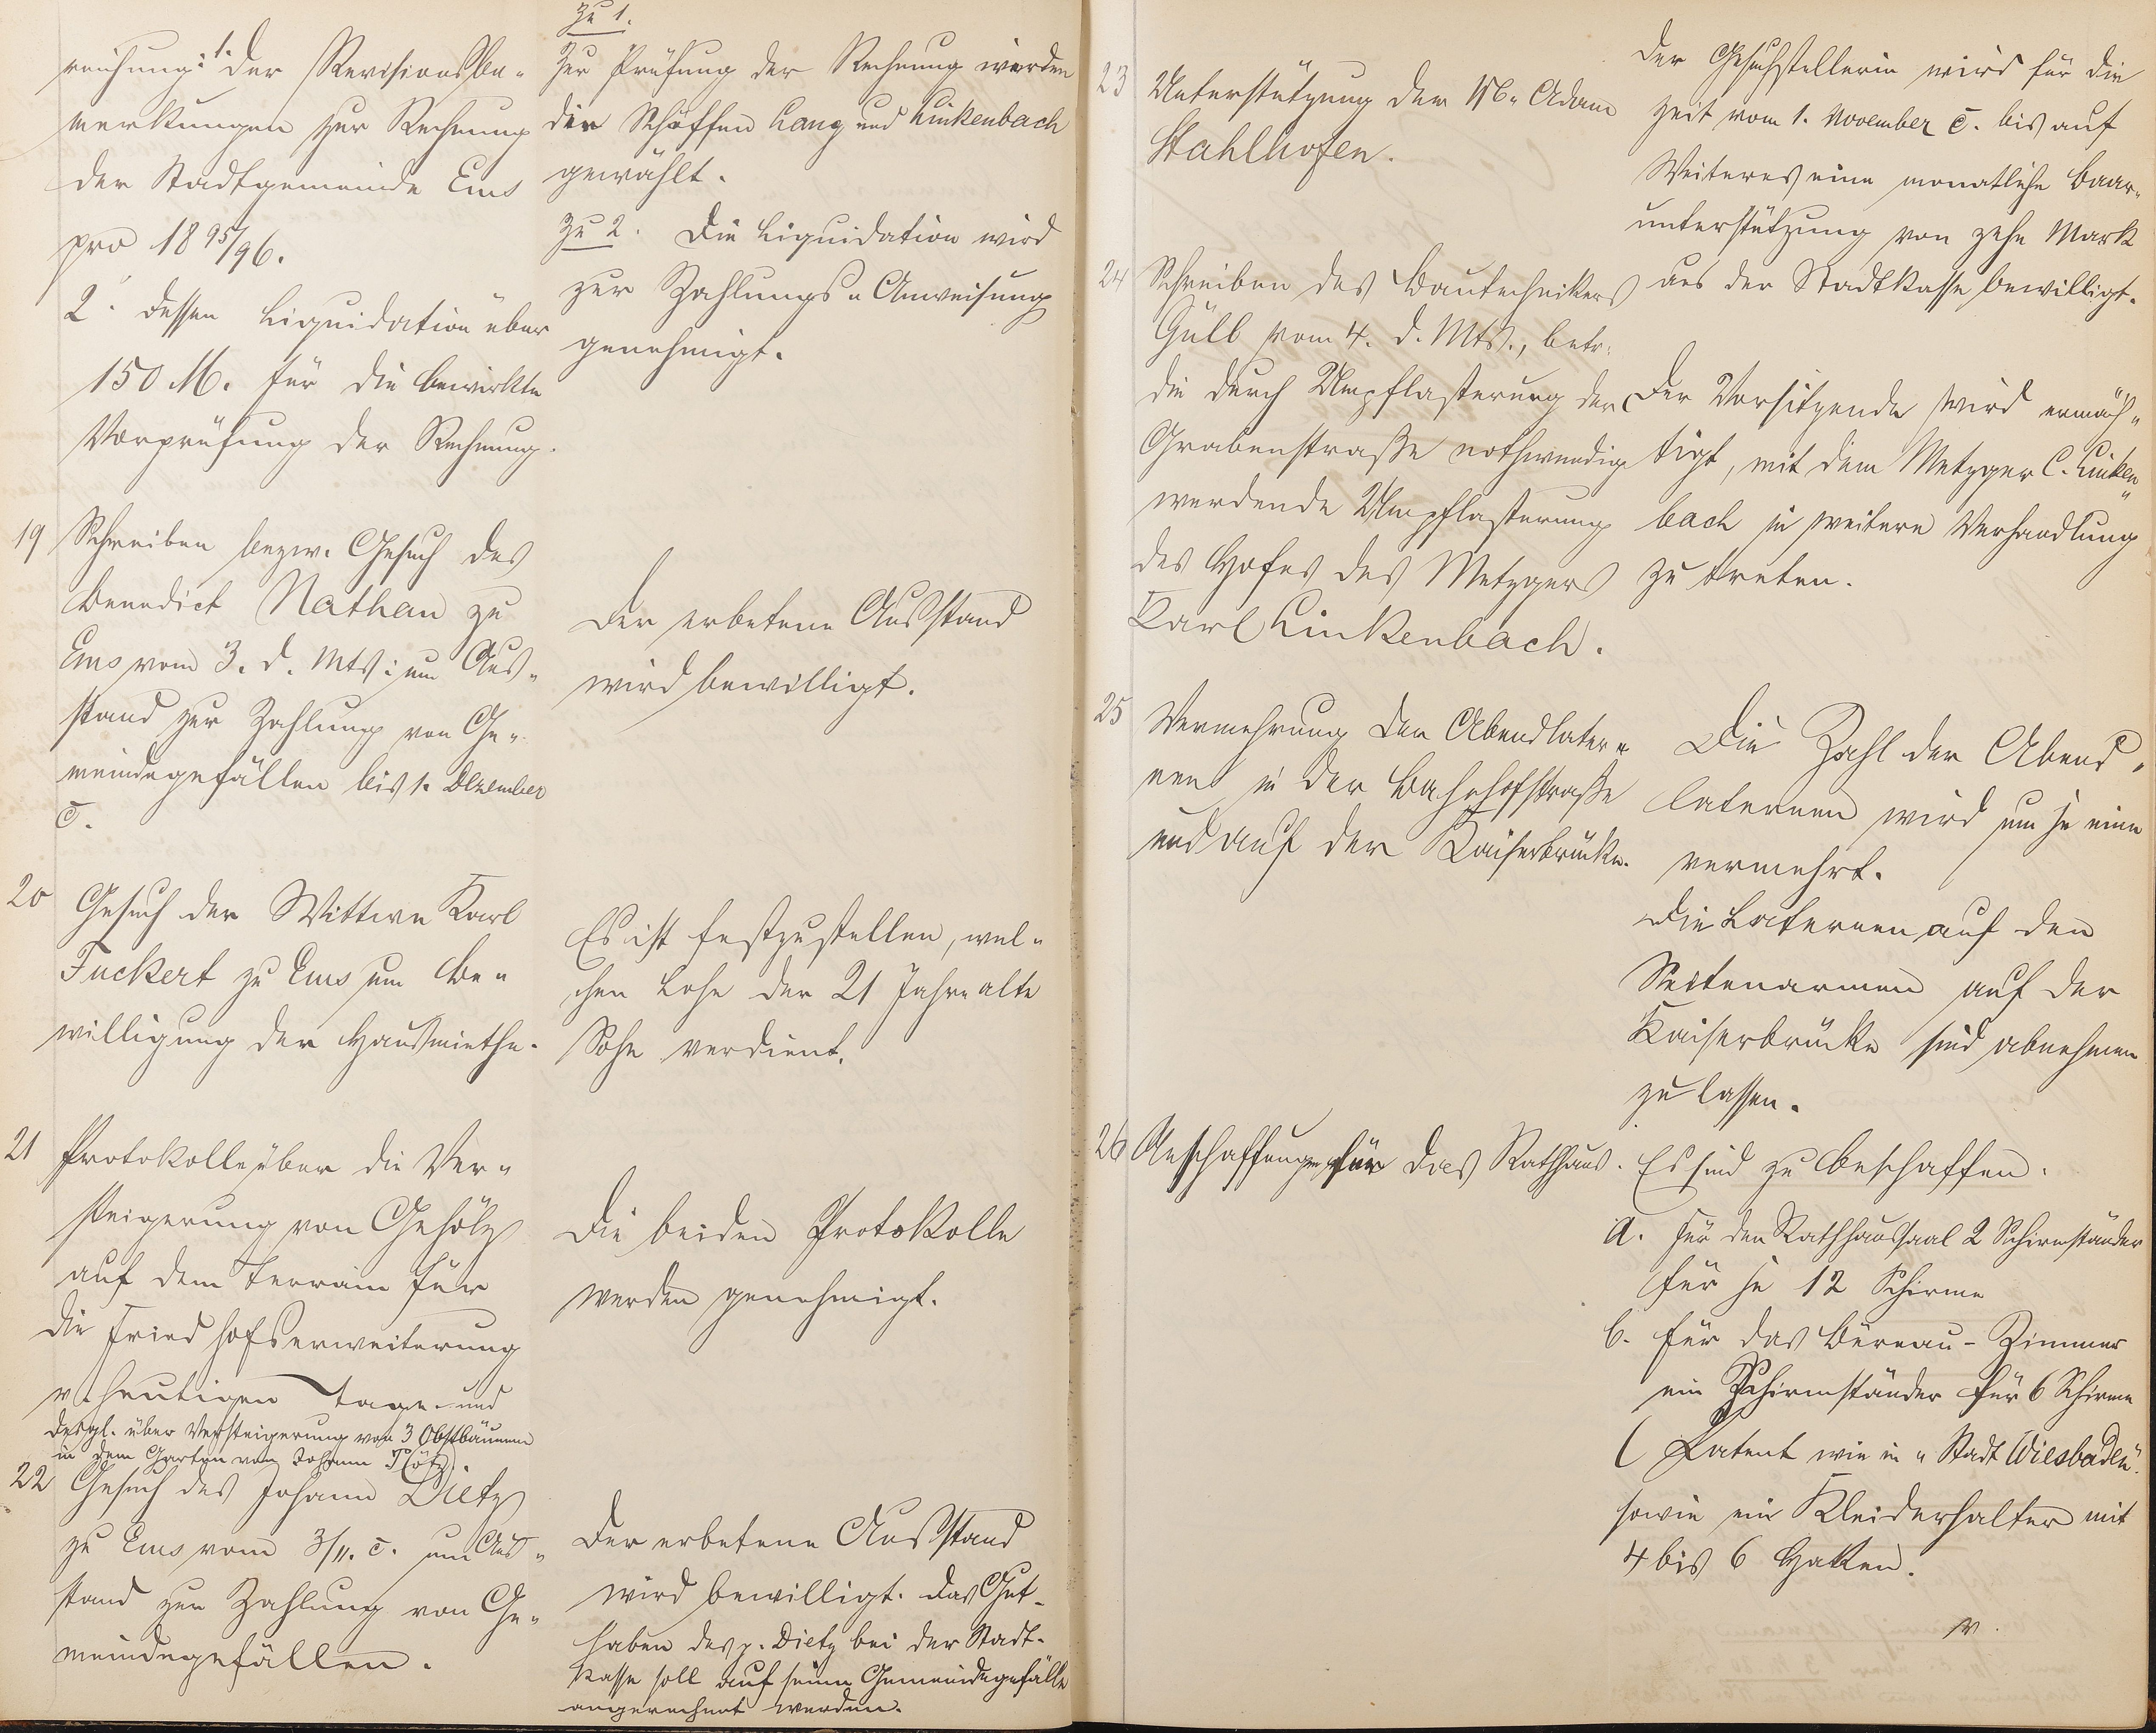 reichung: 1. der Revisionsbe-
merkungen zur Rechnung
der Stadtgemeinde Ems
pro 1895/96.
2. dessen Liquidation über
150 M. für die bewirkte
Vorprüfung der Rechnung.
zu 1.
Zur Prüfung der Rechnung werden
die Schöffen Lang und Linkenbach
gewählt.
zu 2. Die Liquidation wird
zur Zahlungs-Anweisung
genehmigt.
19 Schreiben bezw. Gesuch des
Benedict Nathan zu
Ems vom 3. d. Mts: um Aus-
stand zur Zahlung von Ge-
meindegefällen bis 1. Dezember
c.
Der erbetene Ausstand
wird bewilligt.
20 Gesuch der Wittwe Karl
Fuckert zu Ems um Be-
willigung der Hausmiethe.
Es ist festzustellen, wel-
chen Lohn der 21 Jahre alte
Sohn verdient.
21 Protokolle über die Ver-
steigerung von Gehölz
auf dem Terrain für
die Friedhofserweiterung
v. heutigen Tage und
desgl. über Versteigerung von 3 Obstbäumen
in dem Garten von Johann
Die beiden Protokolle
werden genehmigt.
22 Gesuch des Johann Dietz
zu Ems vom 3/11. c. um Aus-
stand zur Zahlung von Ge-
meindegefällen.
Der erbetene Ausstand
wird bewilligt. Das Gut-
haben des p. Dietz bei der Stadt-
kasse soll auf seine Gemeindegefälle
angerechnet werden.
23 Unterstützung der Ww. Adam
Stahlhofen.
Der Gesuchstellerin wird für die
Zeit vom 1. November c. bis auf
Weiteres eine monatliche Baar-
unterstützung von zehn Mark
aus der Stadtkasse bewilligt.
24 Schreiben des Bautechnikers
Gülb vom 4. d. Mts., betr.
die durch Umpflasterung der
Grabenstraße nothwendig
werdende Umpflasterung
des Hofes des Metzgers
Karl Linkenbach.
Der Vorsitzende wird ermäch-
tigt, mit dem Metzger C. Linken-
bach in weitere Verhandlung
zu treten.
25 Vermehrung der Abendlater-
nen in der Bahnhofstraße
und auf der Kaiserbrücke.
Die Zahl der Abend-
laternen wird um je eine
vermehrt.
Die Laternen auf den
Seitenarmen auf der
Kaiserbrücke sind abnehmen
zu lassen.
26 Anschaffungen für das Rathhaus.
Es sind zu beschaffen.
a. Für den Rathhaussaal 2 Schirmständer
für je 12 Schirme
b. für das Büreau-Zimmer
ein Schirmständer für 6 Schirme
(Patent wie in "Stadt Wiesbaden"
sowie ein Kleiderhalter mit
4 bis 6 Haken.